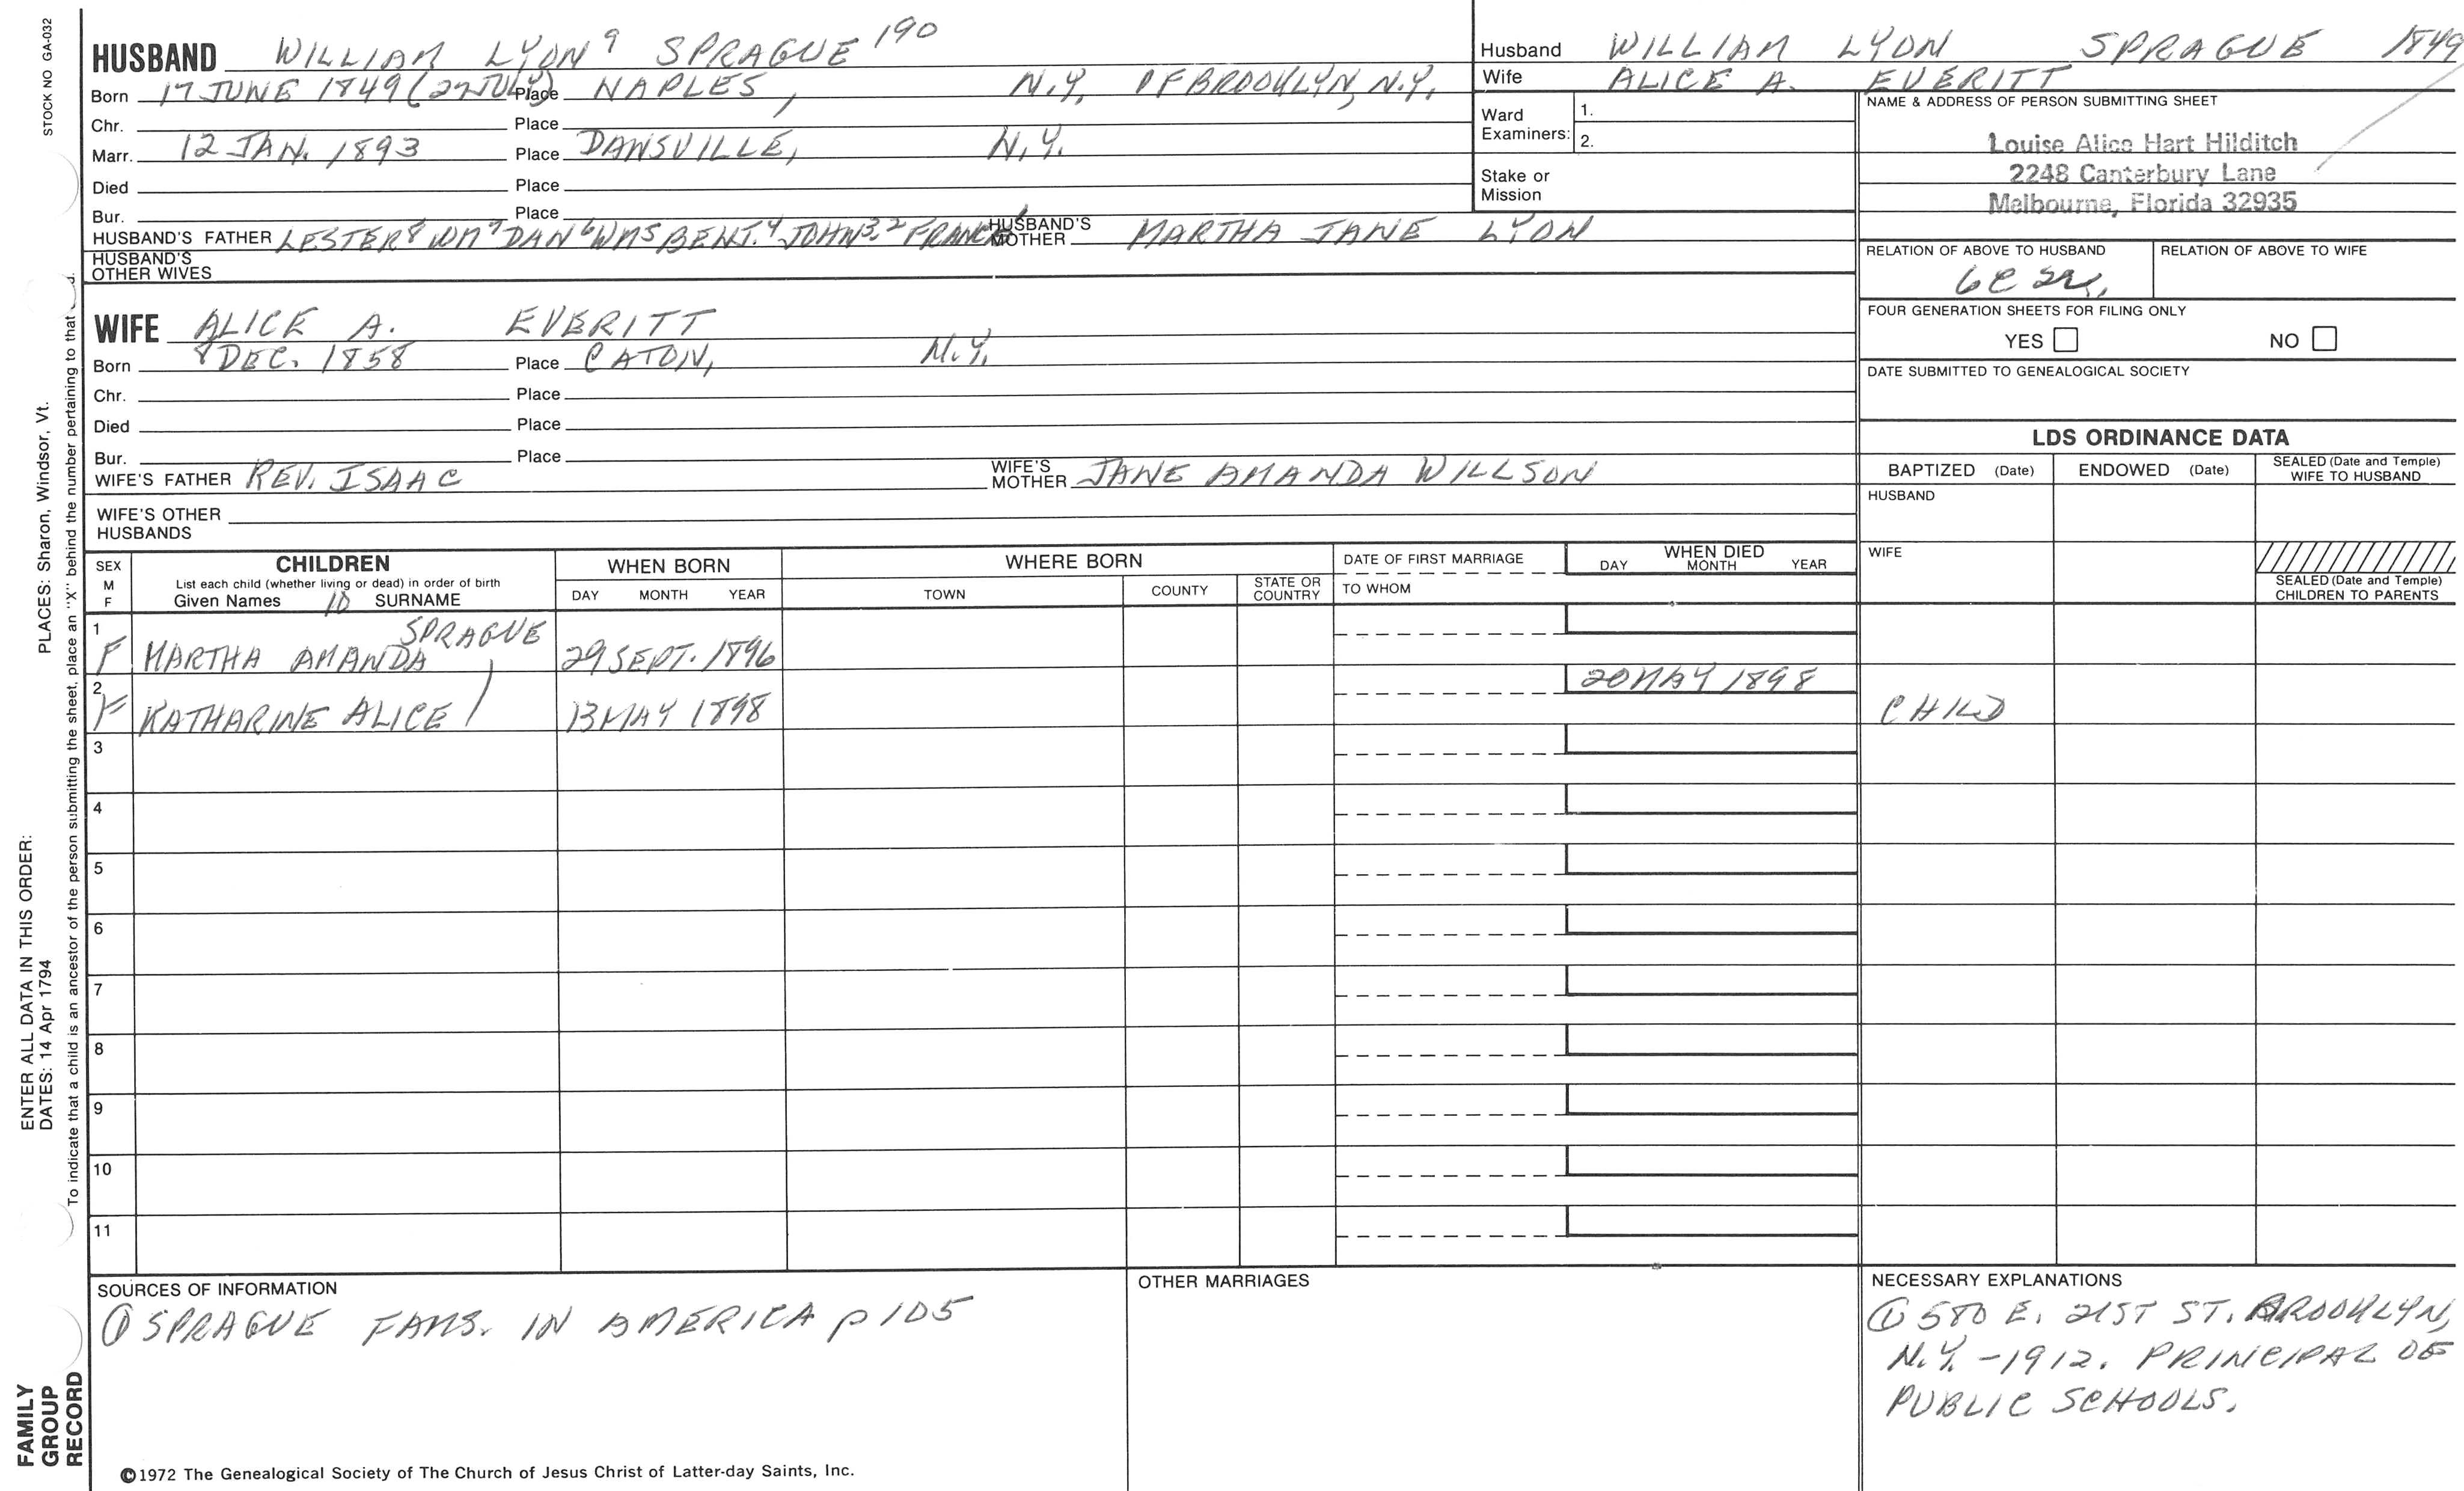 STOCK NO GA-032
HUSBAND WILLIAM LYON⁹ SPRAGUE 190
Born 17 JUNE 1849 (22 JULY) Place NAPLES, N.Y. OF BROOKLYN, N.Y.
Chr. Place
Marr. 12 JAN. 1893 Place DANSVILLE, N.Y.
Died Place
Bur. Place
HUSBAND'S FATHER LESTER⁸ WM⁷ DAN⁶ WM⁵ BENJ.⁴ JOHN³,² HUSBAND'S MOTHER MARTHA JANE LYON
HUSBAND'S OTHER WIVES
Husband WILLIAM LYON SPRAGUE 1849
Wife ALICE A. EVERITT
Ward Examiners: 1.
2.
Stake or Mission
NAME & ADDRESS OF PERSON SUBMITTING SHEET
Louise Alice Hart Hilditch
2248 Canterbury Lane
Melbourne, Florida 32935
RELATION OF ABOVE TO HUSBAND RELATION OF ABOVE TO WIFE
6C
FOUR GENERATION SHEETS FOR FILING ONLY
YES NO
DATE SUBMITTED TO GENEALOGICAL SOCIETY
WIFE ALICE A. EVERITT
Born 8 DEC. 1858 Place CATON, N.Y.
Chr. Place
Died Place
Bur. Place
WIFE'S FATHER REV. ISAAC WIFE'S MOTHER JANE AMANDA WILLSON
WIFE'S OTHER HUSBANDS
LDS ORDINANCE DATA
BAPTIZED (Date) ENDOWED (Date) SEALED (Date and Temple) WIFE TO HUSBAND
HUSBAND
WIFE
SEALED (Date and Temple) CHILDREN TO PARENTS
SEX M F CHILDREN WHEN BORN WHERE BORN DATE OF FIRST MARRIAGE WHEN DIED
List each child (whether living or dead) in order of birth DAY MONTH YEAR
Given Names 10 SURNAME DAY MONTH YEAR TOWN COUNTY STATE OR COUNTRY TO WHOM
1 F MARTHA AMANDA SPRAGUE 29 SEPT. 1896
2 F KATHARINE ALICE 13 MAY 1898 20 MAY 1898 CHILD
3
4
5
6
7
8
9
10
11
SOURCES OF INFORMATION
① SPRAGUE FAMS. IN AMERICA p 105
OTHER MARRIAGES
NECESSARY EXPLANATIONS
① 580 E. 21ST ST. BROOKLYN,
N.Y. - 1912. PRINCIPAL OF
PUBLIC SCHOOLS.
©1972 The Genealogical Society of The Church of Jesus Christ of Latter-day Saints, Inc.
FAMILY
GROUP
RECORD
ENTER ALL DATA IN THIS ORDER:
DATES: 14 Apr 1794 PLACES: Sharon, Windsor, Vt.
To indicate that a child is an ancestor of the person submitting the sheet, place an "X" behind the number pertaining to that